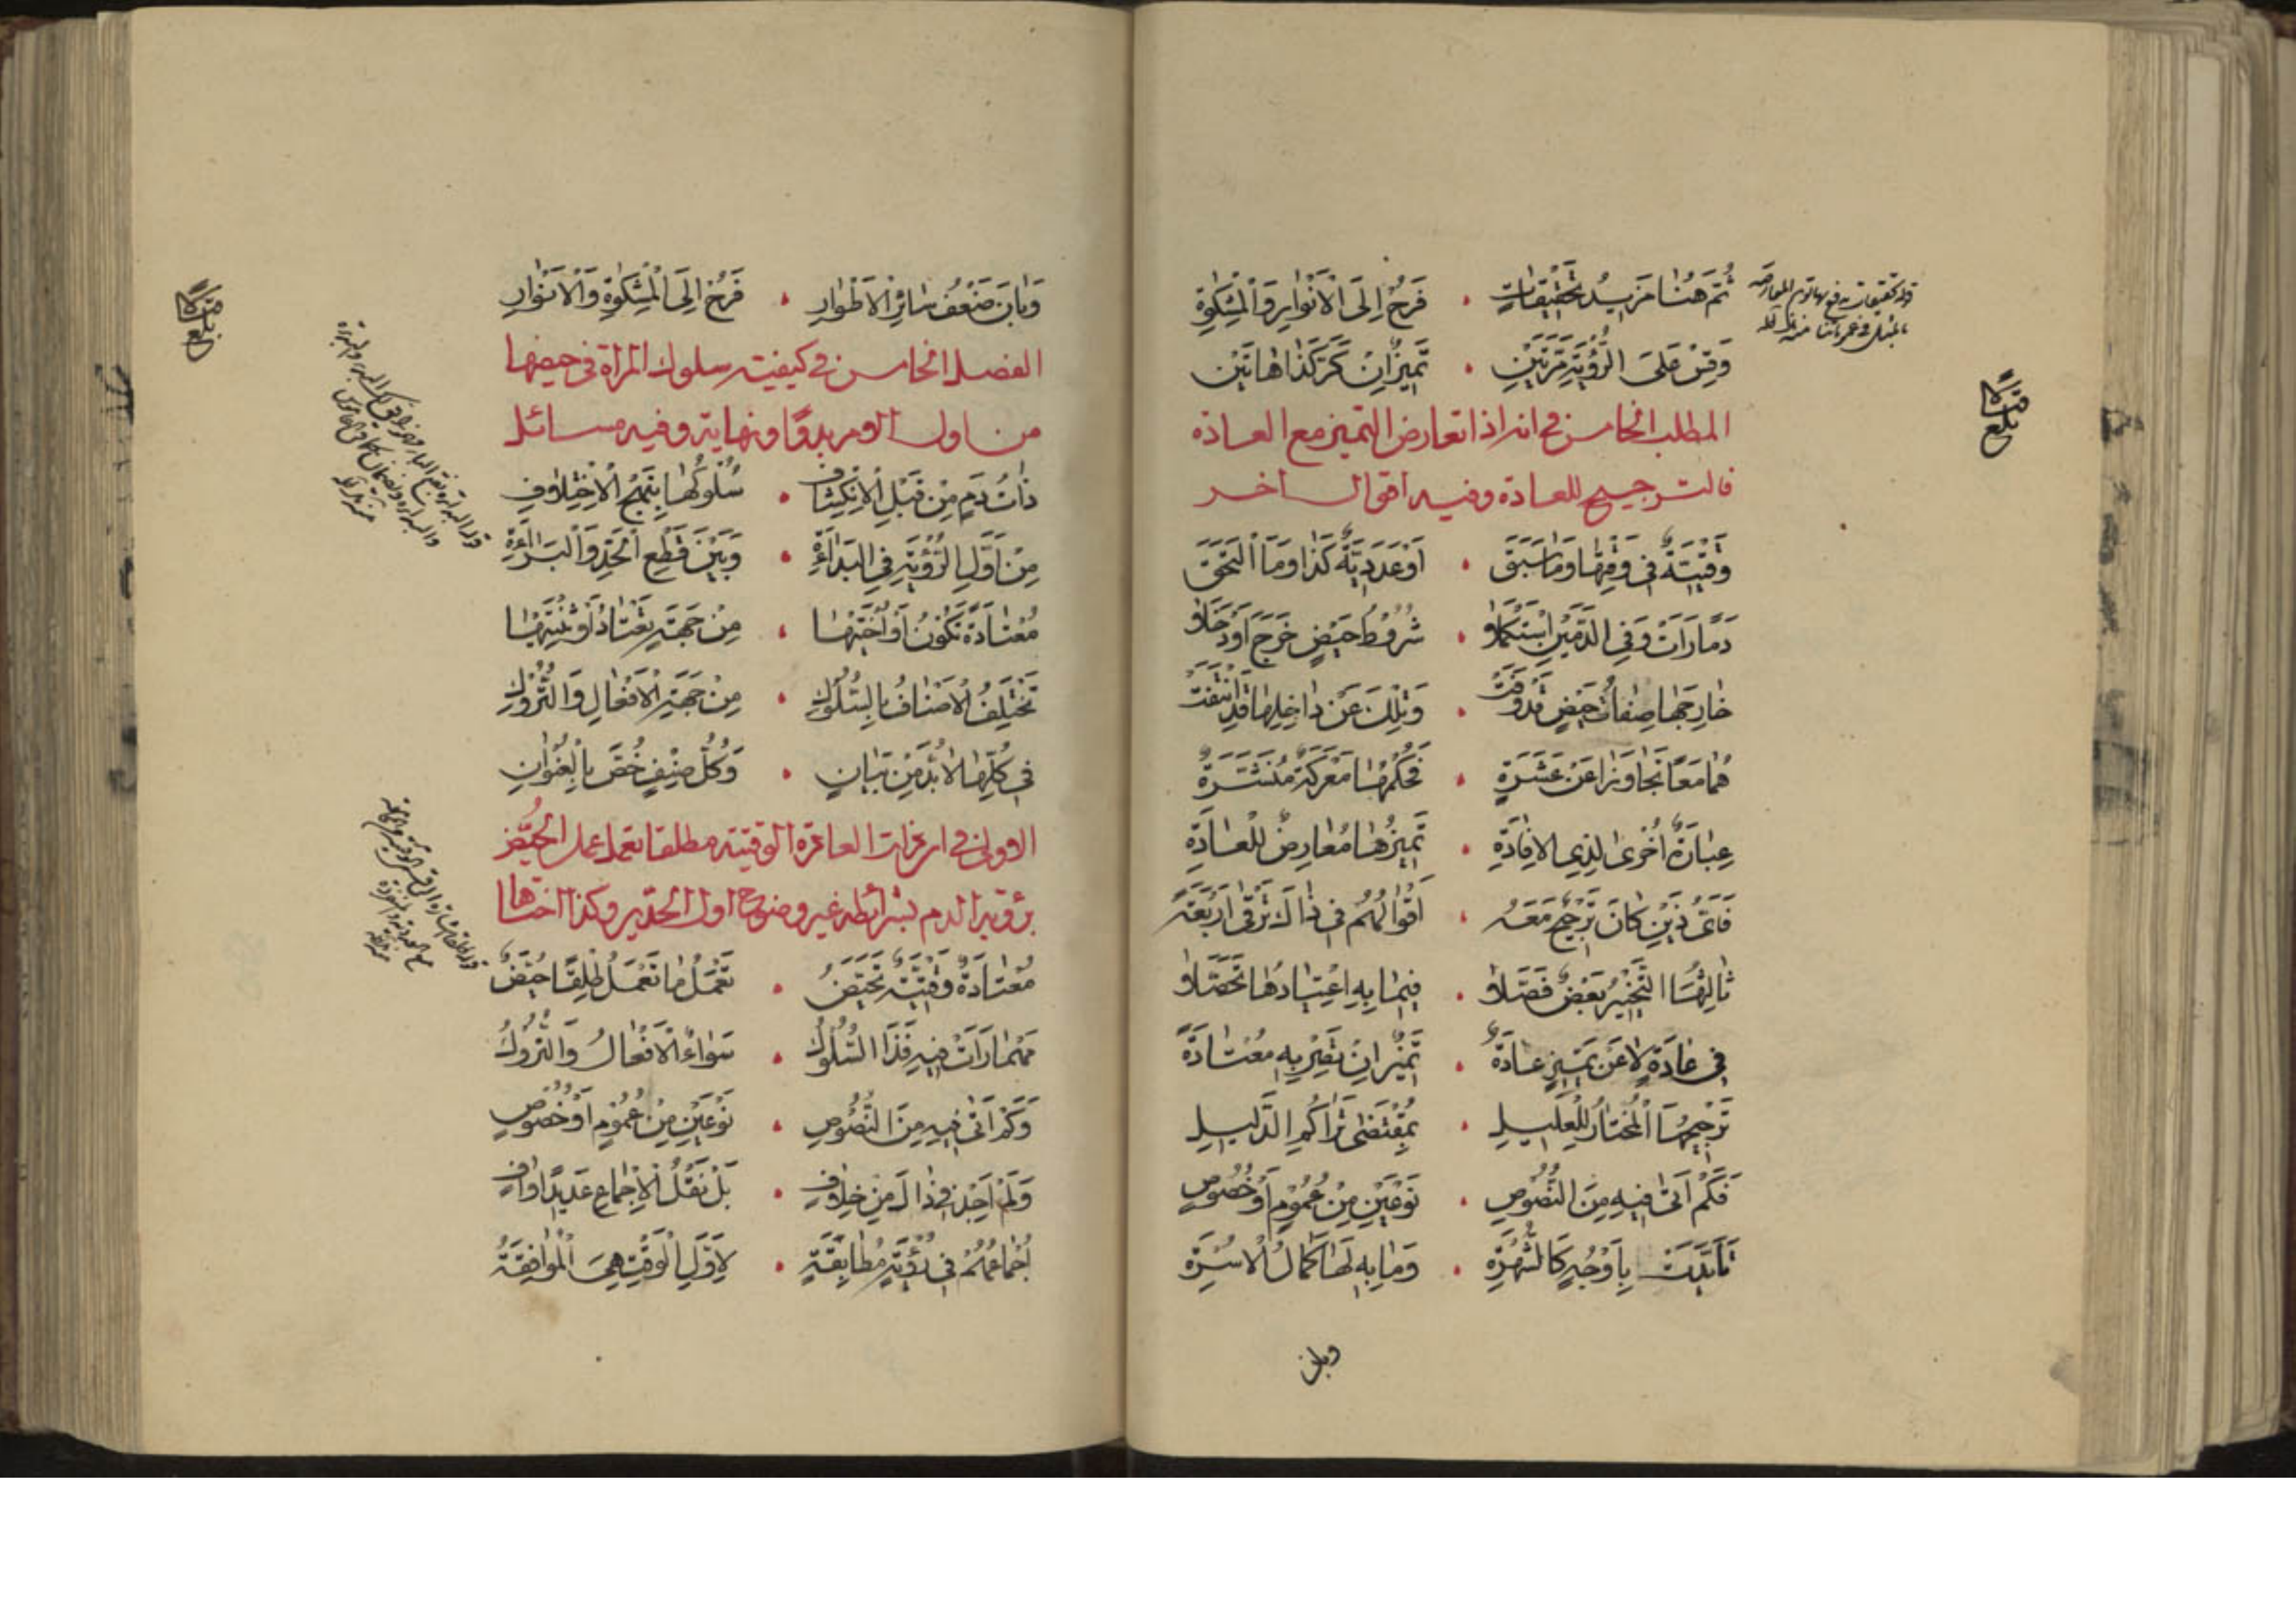 ثُمَّ هُنَا مَزِيدُ تَحْقِيقَاتٍ • فَرُحْ إِلَى الْأَنْوَارِ وَالْمِشْكَوةِ
وَقِسْ عَلَى الرُّؤْيَةِ مَرَّتَيْنِ • تَمَيُّزَانِ كَرَّ كَذَا هَاتَيْن
المطلب الخامس في انه اذا تعارض التميز مع العادة
فالترجيح للعادة وفيه اقوال اخر
وَقْتِيَّةٌ فِي وَقْتِهَا وَمَا سَبَقَ • أَوْ عَدَدِيَّةٌ كَذَا وَمَا الْتَحَقَ
دَمًا رَأَتْ وَفِي الدَّمَيْنِ اسْتُكْمِلَا • شُرُوطُ حَيْضٍ خَرَجَ أَوْ دَخَلَا
خَارِجَهَا صِفَاتُ حَيْضٍ قَدْ وَفَتْ • وَتِلْكَ عَنْ دَاخِلِهَا قَدِ انْتَفَتْ
هُمَا مَعًا تَجَاوَزَا عَنْ عَشَرَةٍ • فَحُكْمُهَا مَعْرَكَةٌ مُنْتَشَرَةٌ
عِبَارَةٌ أُخْرَى لِذِي الْإِفَادَةِ • تَمَيُّزُهَا مُعَارِضٌ لِلْعَادَةِ
فَأَيُّ ذَيْنِ كَانَ تَرْجِيحٌ مَعَهُ • أَقْوَالُهُمْ فِي ذَاكَ تَرْقَى أَرْبَعَةً
ثَالِثُهَا التَّخْيِيرُ بَعْضٌ فَصَّلَا • فِيمَا بِهِ اعْتِيَادُهَا تَحَصَّلَا
فِي عَادَةٍ لَا عَنْ تَمَيُّزٍ عَادَةٌ • تَمَيُّزٌ إِنْ تَصِرْ بِهِ مُعْتَادَةً
تَرْجِيحُهَا الْمُخْتَارُ لِلْعَلِيلِ • بِمُقْتَضَى تَرَاكُمِ الدَّلِيلِ
فَكَمْ أَتَى فِيهِ مِنَ النُّصُوصِ • نَوْعَيْنِ مِنْ عُمُومٍ أَوْ خُصُوصٍ
تَأَيَّدَتْ بِأَوْجُهٍ كَالشُّهْرَةِ • وَمَا بِهِ لَهَا كَمَالُ الْأُسْرَةِ
وبان
بلغ
وَبَانَ ضَعْفُ سَائِرِ الْأَطْوَارِ • فَرُحْ إِلَى الْمِشْكَوةِ وَالْأَنْوَارِ
الفصل الخامس في كيفيته سلوك المراة في حيضها
من اول الامر بدوًا ونهاية وفيه مسائل
ذَاتُ دَمٍ مِنْ قَبْلِ الْاِنْكِشَافِ • سُلُوكُهَا بِنَهْجِ الْاِخْتِلَافِ
مِنْ أَوَّلِ الرُّؤْيَةِ فِي الْبَدَاءَةِ • وَبَيْنَ قَطْعِ الْحَدِّ وَالْبَرَاءَةِ
مُعْتَادَةً تَكُونُ أَوْ أُخْتَهَا • مِنْ جِهَةٍ تَعْتَادُ أَوْ ثِنْتَيْهَا
تَخْتَلِفُ الْأَصْنَافُ بِالسُّلُوكِ • مِنْ جِهَةِ الْأَفْعَالِ وَالتُّرُوكِ
فِي كُلِّهَا لَابُدَّ مِنْ بَيَانٍ • وَكُلُّ صِنْفٍ خُصَّ بِالْعُنْوَانِ
الاولى في ان ذات العادة الوقتية مطلقا تعمل عمل الحيض
برؤية الدم بشرائطه غير وضوح اول الحدين وكذا اختاها
مُعْتَادَةٌ وَقْتِيَّةٌ تَحَيَّضُ • تَعْمَلُ مَا تَعْمَلُ طَلِقًا حُيَّضٌ
مَهْمَا رَأَتْ فِيهِ فَذَا السُّلُوكُ • سَوَاءٌ الْأَفْعَالُ وَالتُّرُوكُ
وَكَمْ أَتَى فِيهِ مِنَ النُّصُوصِ • نَوْعَيْنِ مِنْ عُمُومٍ أَوْ خُصُوصٍ
وَلَمْ أَجِدْ فِي ذَاكَ مِنْ خِلَافٍ • بَلْ نَقْلُ الْإِجْمَاعِ عَدِيدًا وَافٍ
إِجْمَاعُهُمْ فِي رُؤْيَةٍ مُطَابِقَةٍ • لِأَوَّلِ الْوَقْتِ هِيَ الْمُوَافِقَةُ
بلغ